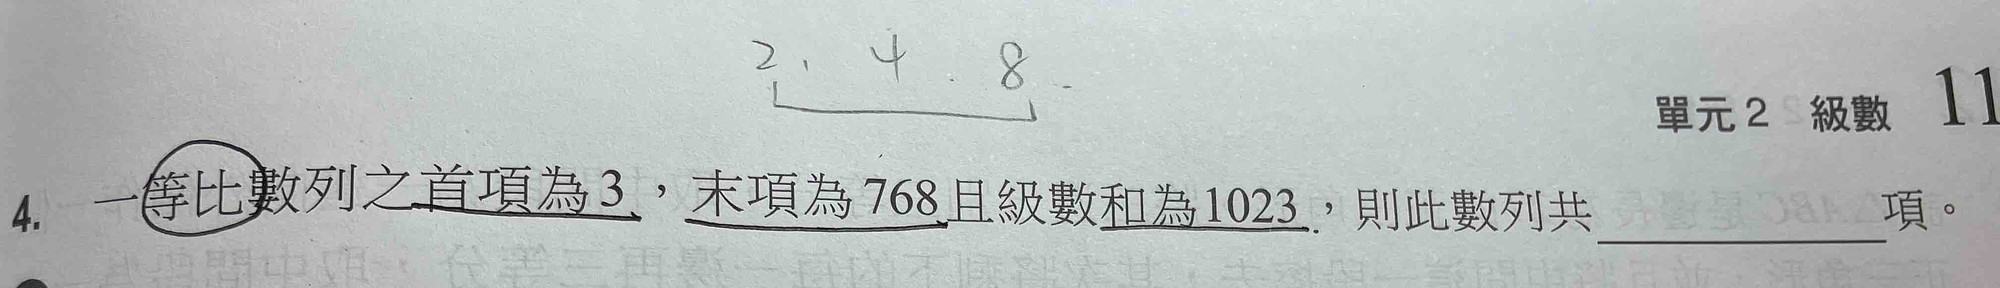 2、4.8.
單元2 級數 11
4. 一等比數列之首項為3，末項為768且級數和為1023，則此數列共________項。